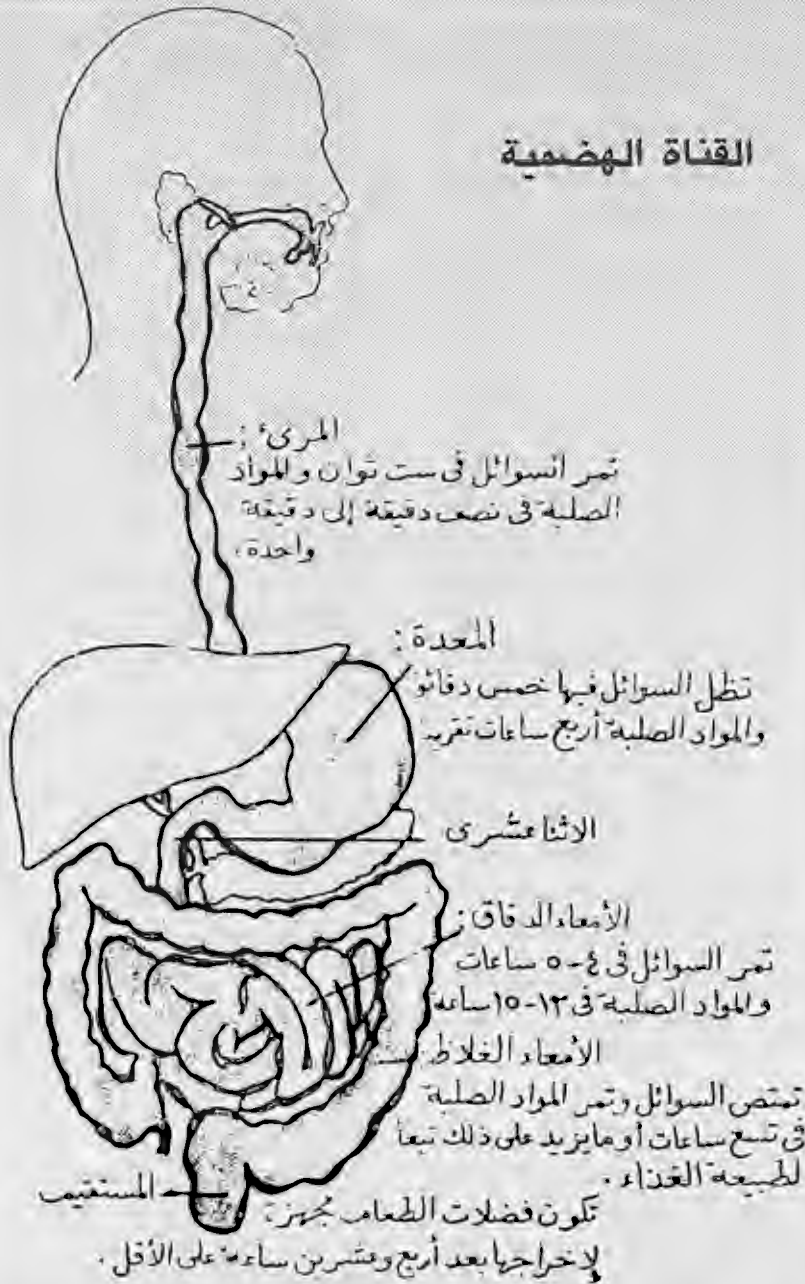 القناة الهضمية
المرىء :
تمر السوائل فى ست ثوان والمواد
الصلبة فى نصف دقيقة إلى دقيقة
واحدة .
المعدة :
تظل السوائل فيها خمس دقائق
والمواد الصلبة أربع ساعات تقريبا
الاثناعشرى
الأمعاء الدقاق :
تمر السوائل فى ٤-٥ ساعات
والمواد الصلبة فى ١٢-١٥ ساعة
الأمعاء الغلاظ :
تمتص السوائل وتمر المواد الصلبة
فى تسع ساعات أو مايزيد على ذلك تبعا
لطبيعة الغذاء .
المستقيم
تكون فضلات الطعام مجهزة
لإخراجها بعد أربع وعشرين ساعة على الأقل .